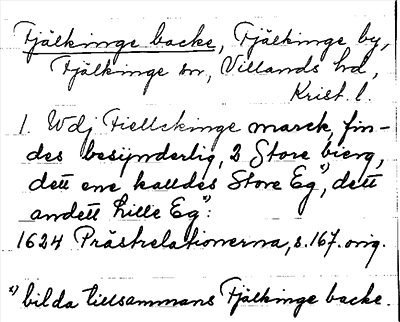 Fjälkinge backe, Fjälkinge by,
Fjälkinge sn, Villands hd,
Krist. l.
1. Wdj Fiellckinge marck, fin-
des besijnderlig, 2 Store bierg,
dett ene kalldes Store Eg x), dett
andett Lille Eg x):
1624 Prästrelationerna, s. 167. orig.
x) bilda tillsammans Fjälkinge backe.